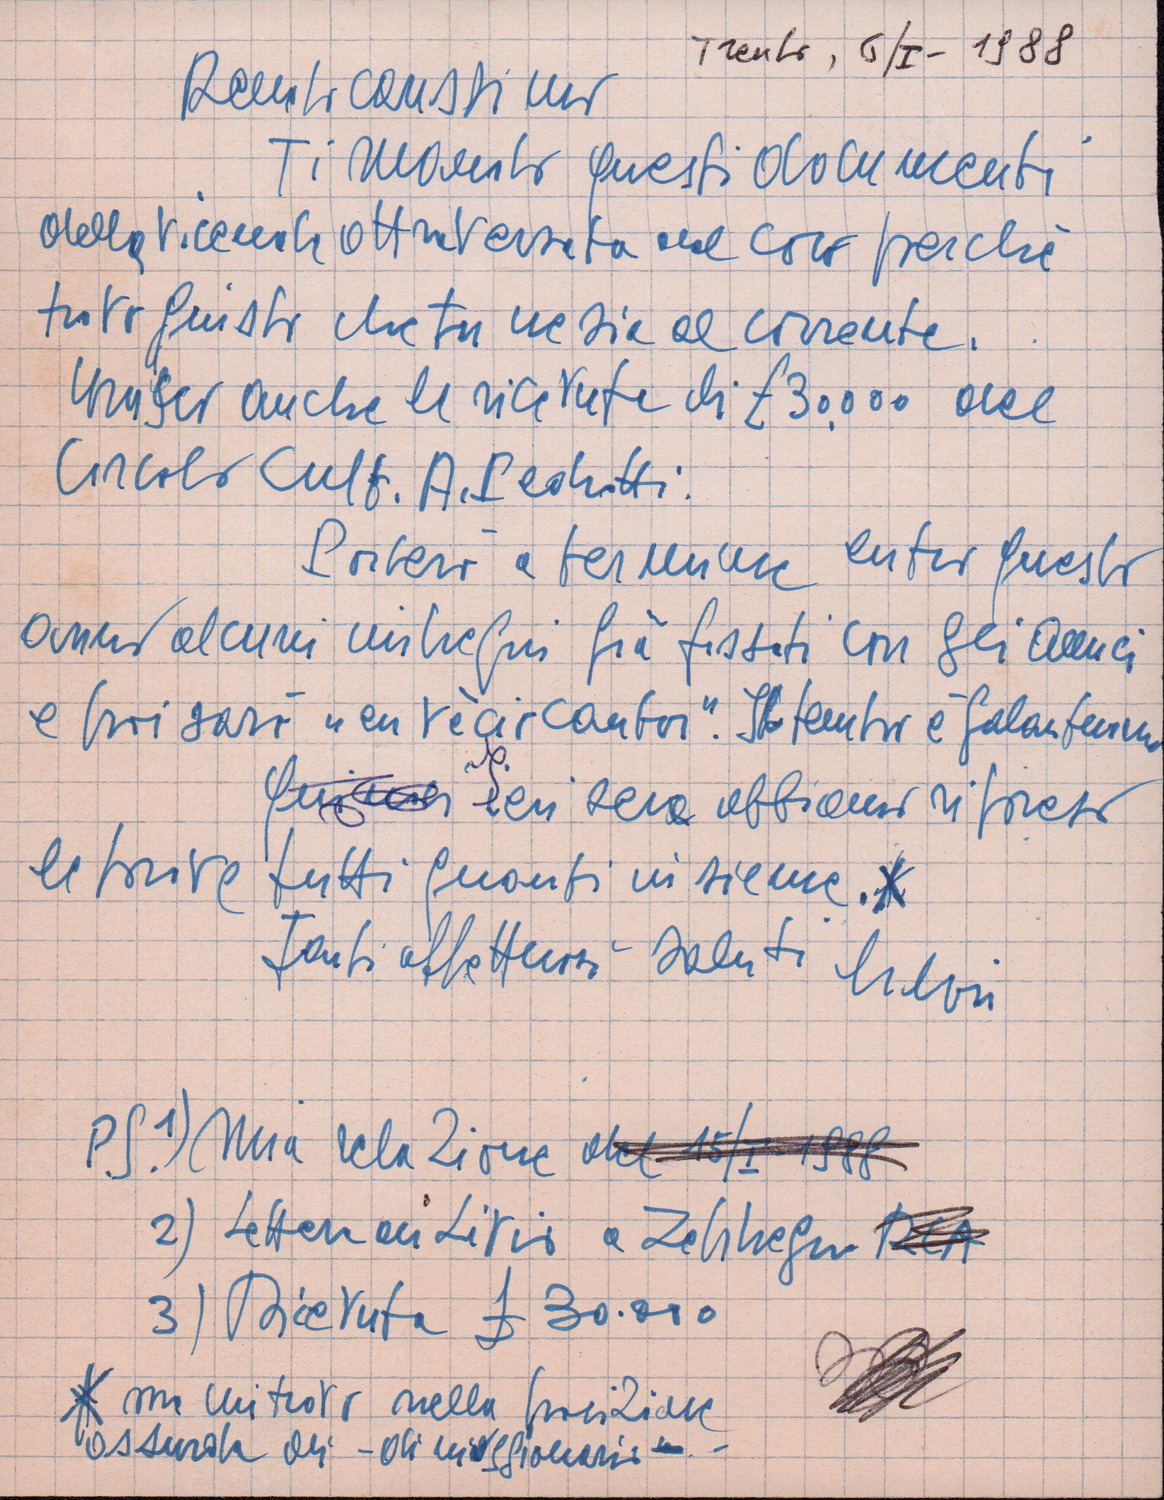 Trento, 6/I- 1988
Renato carissimo
Ti mando questi documenti
della vicenda attraversata dal coro perchè
trovo giusto che tu ne sia al corrente.
Unisco anche la ricevuta di £ 30.000 del
Circolo Cult. A. Pedrotti.
Porterò a termine entro questo
anno alcuni impegni già fissati con gli amici
e poi sarò "en vècio cantor". Il tempo è galantuomo
Ieri sera abbiamo ripreso
le prove tutti quanti insieme.*
Tanti affettuosi saluti
P.S. 1) Mia relazione del 15/I-1988
2) Lettera di Livio a
3) Ricevuta £ 30.000
* ma mi trovo nella posizione
assurda di - dimissionario -